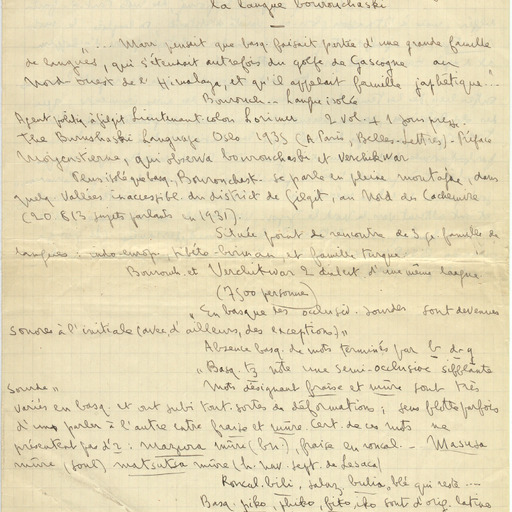 La langue bourouchaski
„ ... Marr pensait que basq. faisait partie d'une grande famille
de langues, qui s'étendait autrefois du golfe de Gascogne au
Nord-Ouest de l'Himalaya, et qu'il appelait famille japhétique...”
Bourouch... Langue isolée
Agent politiq. à Gilgit Lieutenant-colon Lorimer 2 vol. + 1 sous presse.
The Burushaski Language Oslo 1935 (A Paris, Belles-Lettres). Préface
Morgenstierne, qui observa bourouchaski et verchikwar
Plus isolé que basq., Bourouchask. se parle en pleine montagne, dans
quelq. vallées inaccessib. du district de Gilgit, au Nord des Cachemire
(20.813 sujets parlants en 1931).
Située point de rencontre de 3 gr. familles de
langues : indo-europ. tibéto-birman et famille turque.
Bourouch. et Verchikwar 2 dialect. d'une même langue
(7500 personnes)
„ En basque les occlusiv. sourdes sont devenues
sonores à l'initiale (avec, d'ailleurs, des exceptions) „
Absence basq. de mots terminés par b- d- g
„ Basq. tz note une semi-occlusive sifflante
sourde „
Mots désignant fraise et mûre sont très
variés en basq. et ont subi tout. sortes de déformations ; sens flotte parfois
d'un parler à l'autre entre fraise et mûre. Cert. de ces mots ne
présentent pas d'z : mazura mûre (bn.), fraise en roncal. - Masusa
mûre (soul) matsutsa mûre (h. nav. sept. de Lesaca)
Roncal. bili, salaz. bulia, blé qui reste ...
Basq. piko, phiko, fiko, iko sont d'orig. latine